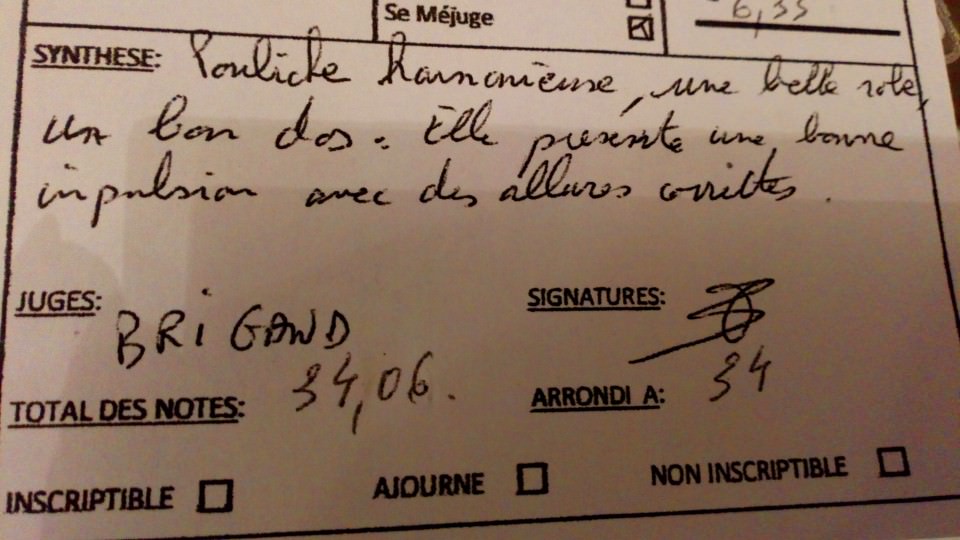 Se Méjuge
6,35
SYNTHESE: Pouliche harmonieuse, une belle robe,
un bon dos. Elle présente une bonne
impulsion avec des allures correctes.
JUGES: BRIGAND SIGNATURES:
TOTAL DES NOTES: 34,06. ARRONDI A: 34
INSCRIPTIBLE AJOURNE NON INSCRIPTIBLE